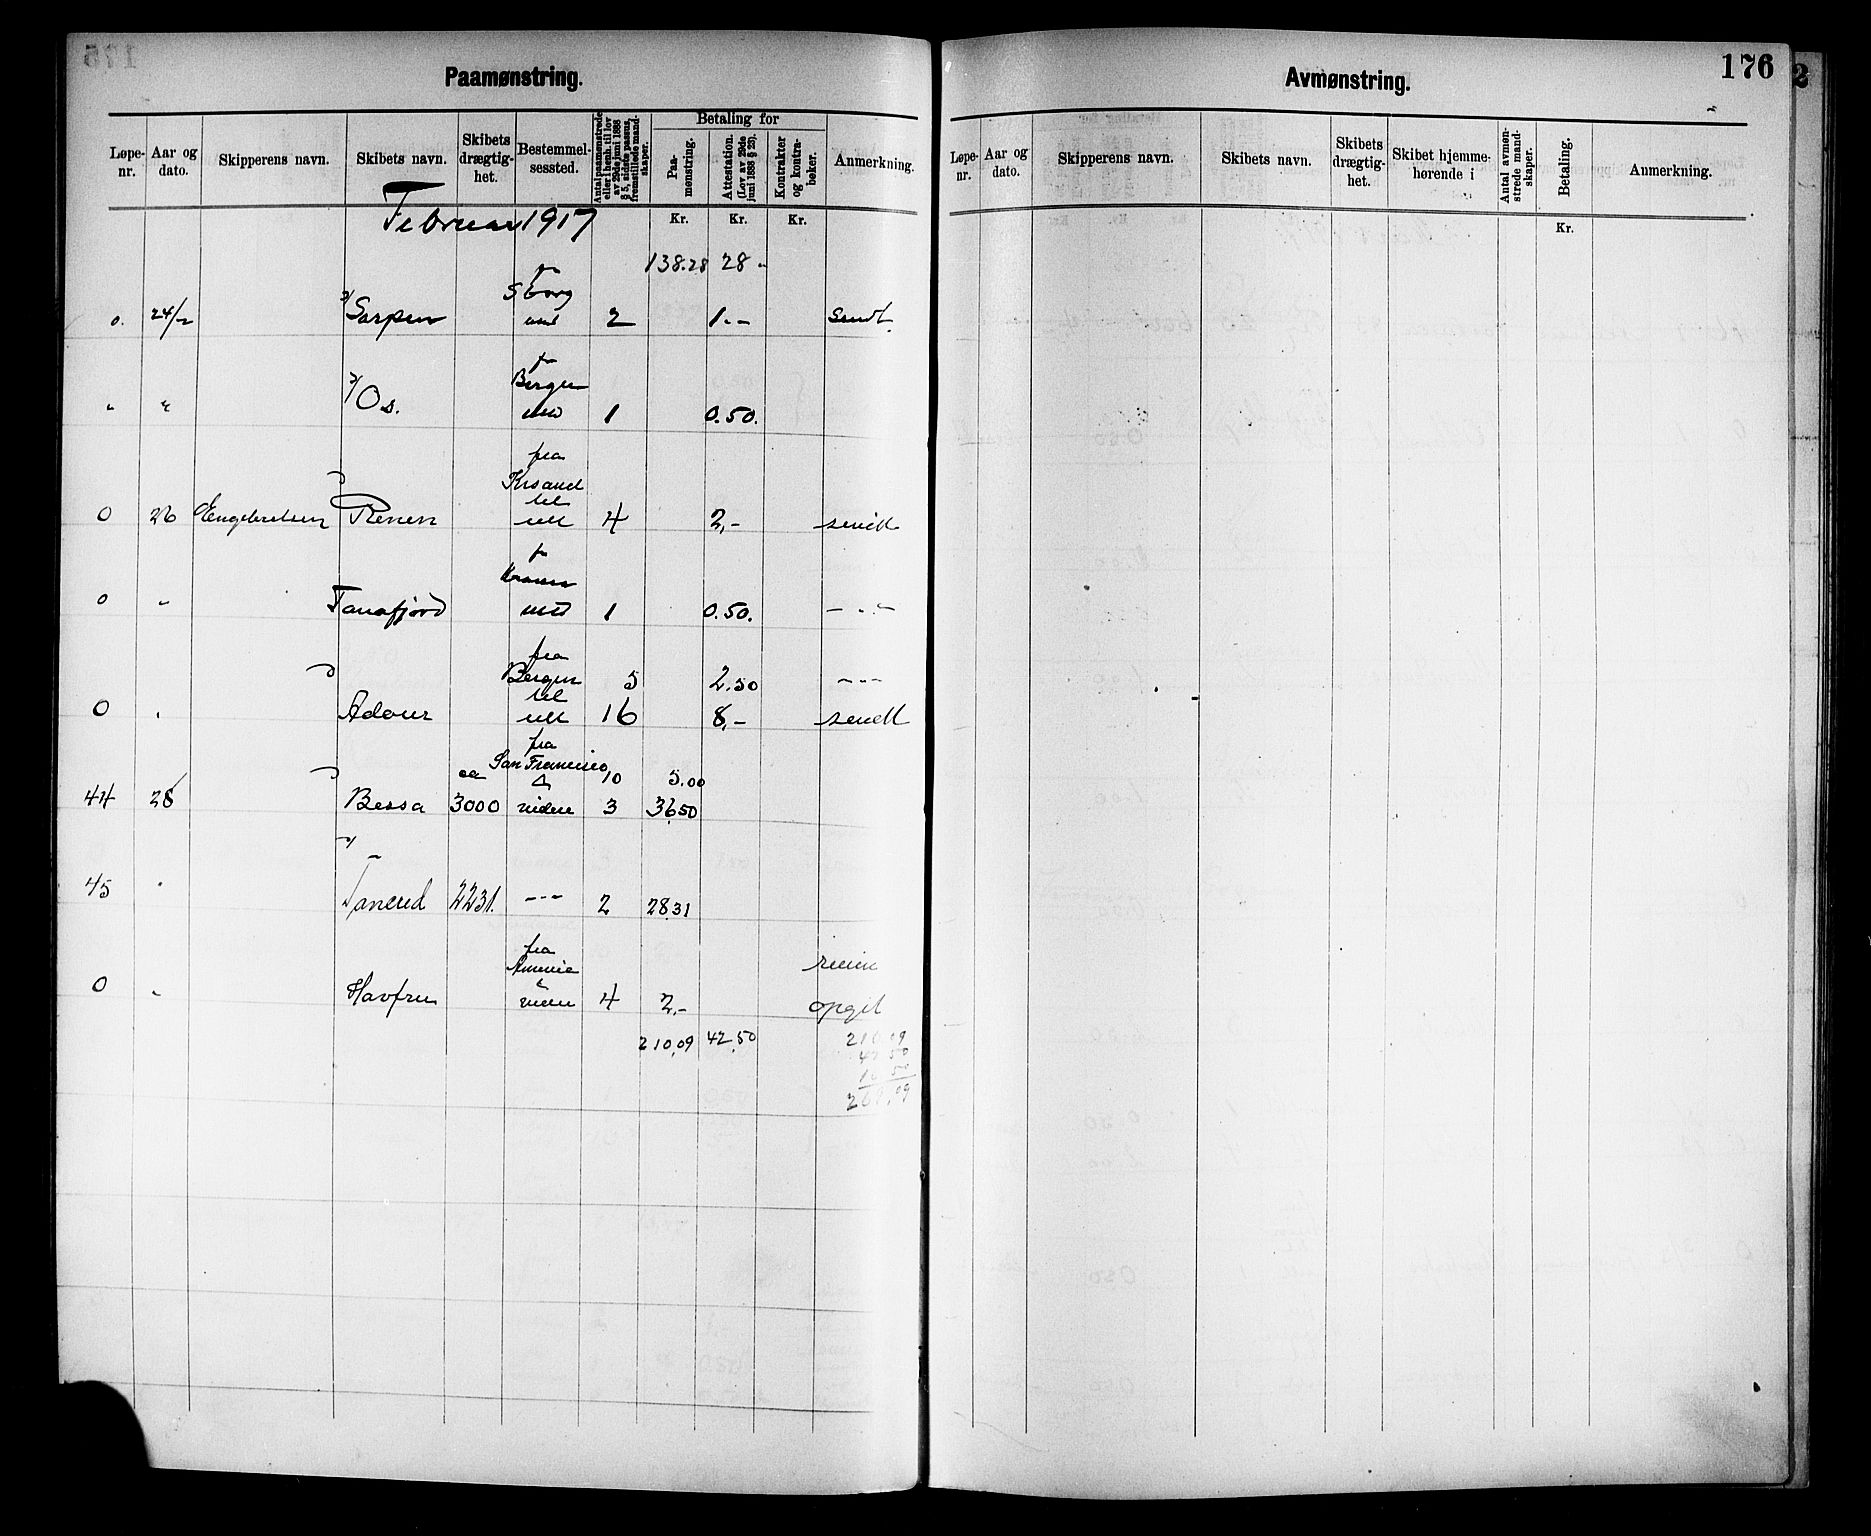 Paamønstring.
Løpe-nr. Aar og dato. Skipperens navn. Skibets navn. Skibets drægtig-het. Bestemmel-sessted. Antal paamønstrede eller i henh. til lov av 29de juni 1888 § 5, sidste passus, fremstillede mand-skaper. Betaling for Paa-mønstring. Attestation. (Lov av 29de juni 1888 § 23). Kontrakter og kontra-bøker. Anmerkning.
Februar 1917 Kr. Kr. Kr.
138.28 28 -
fr
Sborg
0. 24/2 Sarpen 2 1.- sendt
fr
Bergen
" " Os. 1 0.50.
fra
Krsand
til
0 26 Engebretsen 4 2,- sendt
fr
0 " Tanafjord 1 0.50. - " -
fra
Bergen 5 2.50 - " -
til
0 " Adour 16 8,- sendt
fra
San Francisco 10 5.00
44 28 Bessa 3000 videre 3 36,50
45 " Tancred 2231. - " - 2 28.31
fra
0 " Havfru 4 2,- opgit
210,09 42,50 210,09
42 50
Avmønstring.
176
2
Løpe-nr. Aar og dato. Skipperens navn. Skibets navn. Skibets drægtig-het. Skibet hjemme-hørende i Antal avmøn-strede mand-skaper. Betaling. Anmerkning.
Kr.